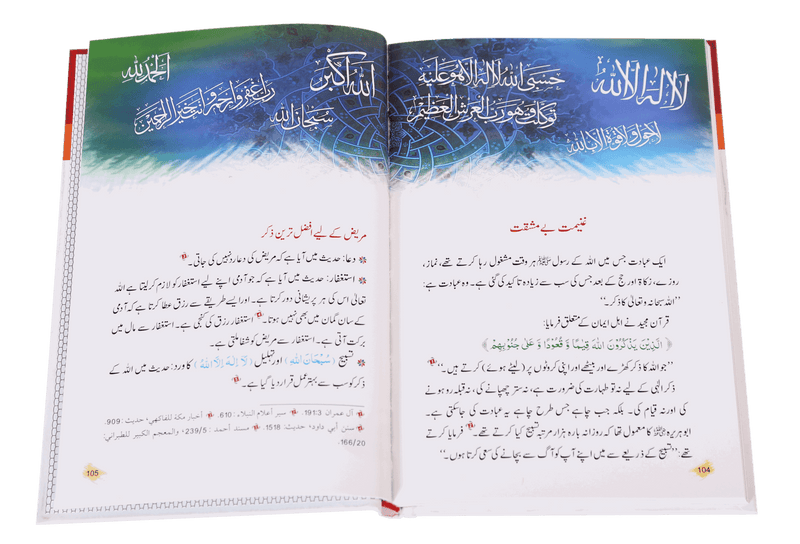 لا اله الا الله
حسبي الله لا اله الا هو عليه
توكلت وهو رب العرش العظيم
لا حول ولا قوة الا بالله
غنیمت بے مشقت
ایک عبادت جس میں اللہ کے رسول ﷺ ہر وقت مشغول رہا کرتے تھے، نماز،
روزے، زکاۃ اور حج کے بعد جس کی سب سے زیادہ تاکید کی گئی ہے۔ وہ عبادت ہے:
”اللہ سبحانہ وتعالیٰ کا ذکر۔“
قرآن مجید نے اہل ایمان کے متعلق فرمایا:
﴿ الَّذِينَ يَذْكُرُونَ اللّٰهَ قِيٰمًا وَّ قُعُوْدًا وَّ عَلٰى جُنُوْبِهِمْ ﴾
”جو اللہ کا ذکر کھڑے اور بیٹھے اور اپنی کروٹوں پر (لیٹے ہوئے) کرتے ہیں۔“
ذکر الٰہی کے لیے نہ تو طہارت کی ضرورت ہے، نہ ستر چھپانے کی، نہ قبلہ رو ہونے
کی اور نہ قیام کی۔ بلکہ جب چاہے جس طرح چاہے یہ عبادت کی جاسکتی ہے۔
ابو ہریرہ کا معمول تھا کہ روزانہ بارہ ہزار مرتبہ تسبیح کیا کرتے تھے۔ فرمایا کرتے
تھے: ”تسبیح کے ذریعے سے میں اپنے آپ کو آگ سے بچانے کی سعی کرتا ہوں۔“
104
الحمد لله
الله اكبر
رب اغفر وارحم وانت خير الراحمين
سبحان الله
مریض کے لیے افضل ترین ذکر
دعا: حدیث میں آیا ہے کہ مریض کی دعا رد نہیں کی جاتی۔
استغفار: حدیث میں آیا ہے کہ جو آدمی اپنے لیے استغفار کو لازم کر لیتا ہے اللہ
تعالیٰ اس کی ہر پریشانی دور کرتا ہے۔ اور ایسے طریقے سے رزق عطا کرتا ہے کہ آدمی
کے سان گمان میں بھی نہیں ہوتا۔ استغفار رزق کی کنجی ہے۔ استغفار سے مال میں
برکت آتی ہے۔ استغفار سے مریض کو شفا ملتی ہے۔
تسبیح (سُبْحَانَ اللّٰهِ) اور تہلیل (لَا إِلٰهَ إِلَّا اللّٰهُ) کا ورد: حدیث میں اللہ کے
ذکر کو سب سے بہتر عمل قرار دیا گیا ہے۔
آل عمران 191:3. سير أعلام النبلاء: 610. أخبار مكة للفاكهي، حديث: 909.
سنن أبي داود، حديث: 1518. مسند أحمد: 239/5، والمعجم الكبير للطبراني:
166/20.
105